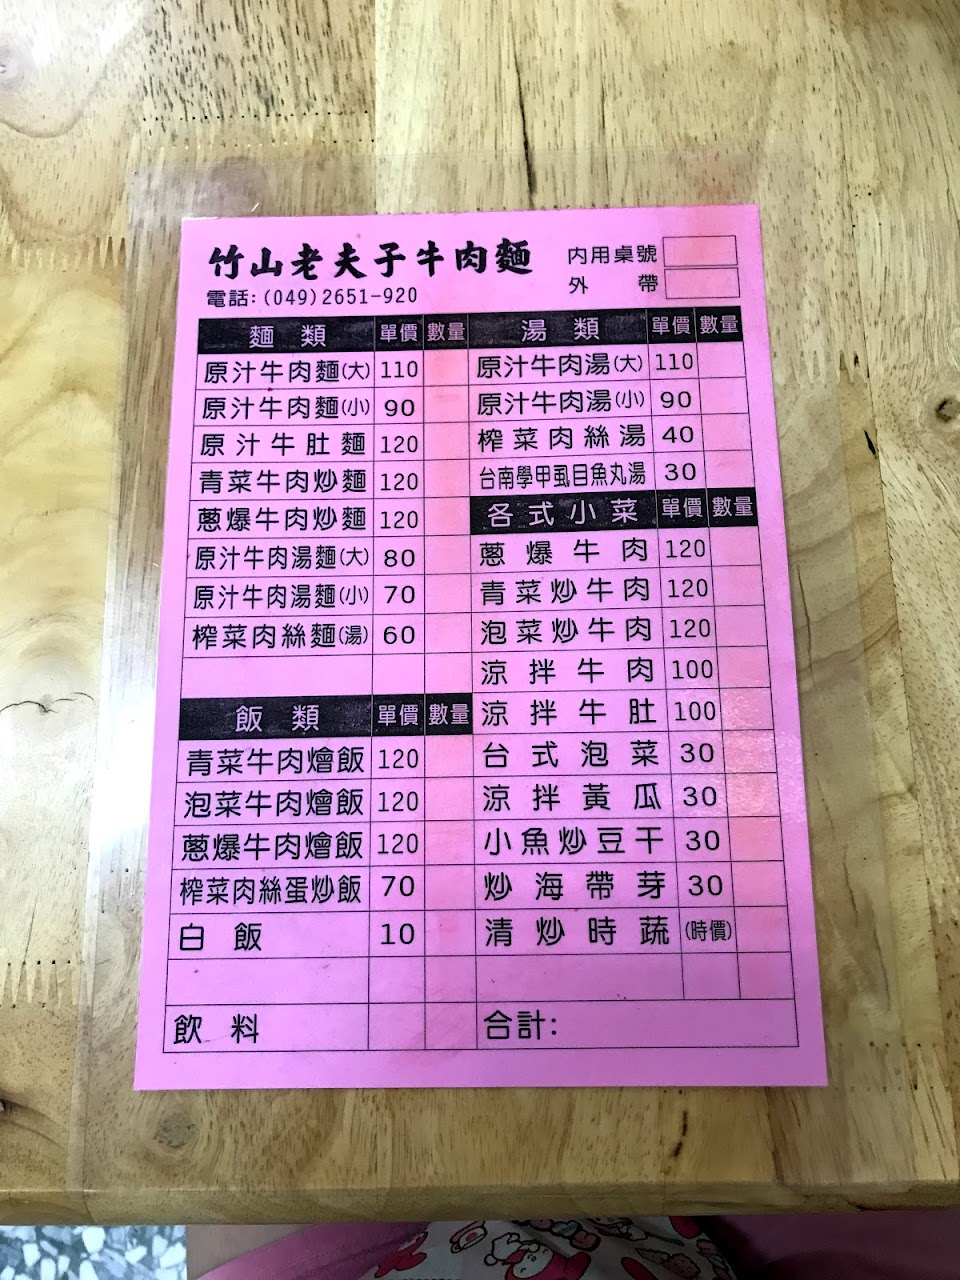 竹山老夫子牛肉麵
電話:(049)2651-920
內用桌號
外 帶
麵 類 單價 數量
原汁牛肉麵(大) 110
原汁牛肉麵(小) 90
原汁牛肚麵 120
青菜牛肉炒麵 120
蔥爆牛肉炒麵 120
原汁牛肉湯麵(大) 80
原汁牛肉湯麵(小) 70
榨菜肉絲麵(湯) 60
飯 類 單價 數量
青菜牛肉燴飯 120
泡菜牛肉燴飯 120
蔥爆牛肉燴飯 120
榨菜肉絲蛋炒飯 70
白 飯 10
飲 料
湯 類 單價 數量
原汁牛肉湯(大) 110
原汁牛肉湯(小) 90
榨菜肉絲湯 40
台南學甲虱目魚丸湯 30
各式小菜 單價 數量
蔥爆牛肉 120
青菜炒牛肉 120
泡菜炒牛肉 120
涼拌牛肉 100
涼拌牛肚 100
台式泡菜 30
涼拌黃瓜 30
小魚炒豆干 30
炒海帶芽 30
清炒時蔬 (時價)
合計: